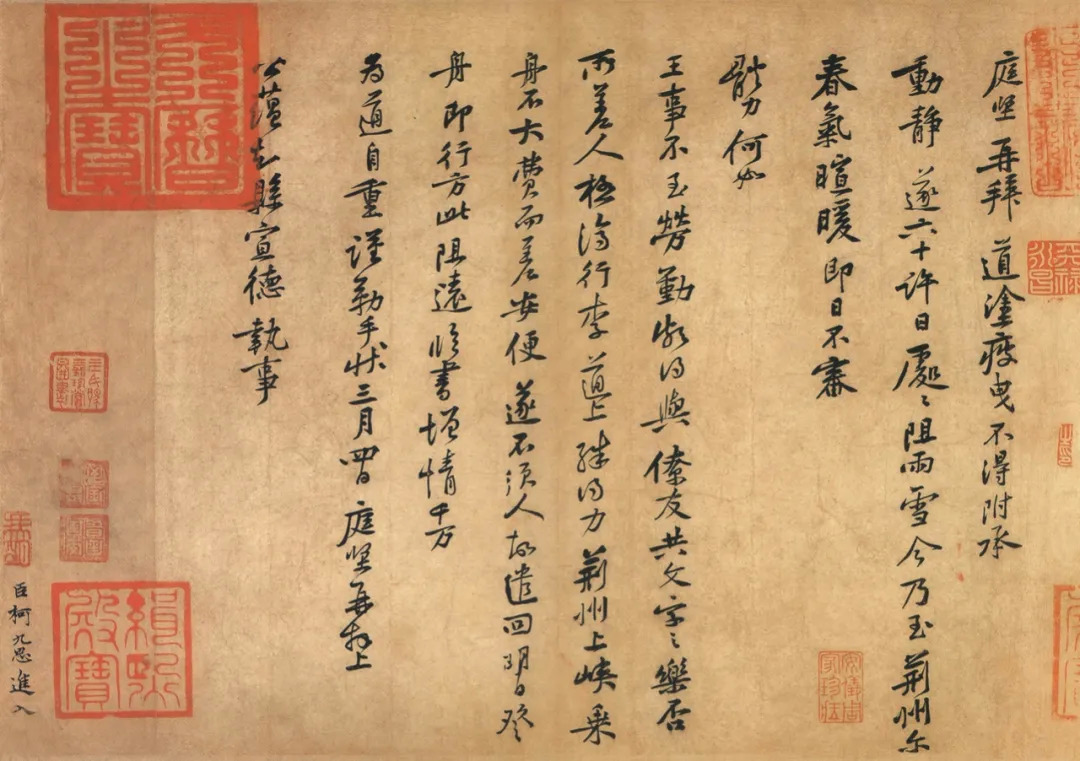 庭堅再拜道塗疲曳不得附承
動靜遂六十許日處〻阻雨雪今乃至荊州尔
春氣暄暖即日不審
體力何如
王事不至勞勤頗得與僚友共文字之樂否
所差人極濟行李道上殊得力荊州上峽乘
舟不大費而差安便遂不須人故遣回明日登
舟即行方此阻遠臨書增情千万
為道自重謹勒手狀三月四日庭堅再拜上
公蘊知縣宣德執事
臣柯九思進入
緝熙殿寶
安儀周家珍藏